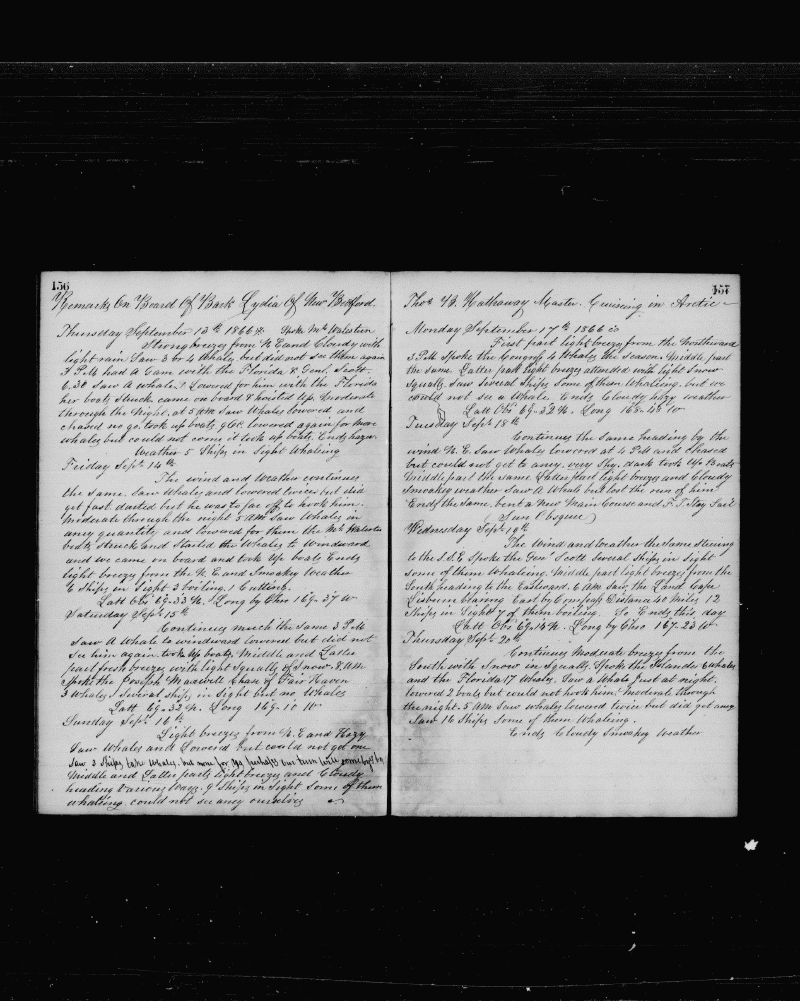 156
Remarks On Board Of Bark Lydia Of New Bedford
Thursday September 13th 1866 Spoke Mt Walaston
Strong breezes from N.E. and Cloudy with
light rain Saw 3 or 4 Whales but did not see them again
P.M. had A Gam with the Florida & Genl. Scott
6.30 Saw A whale. Lowered for him with the Florida
her boats Struck came on board & hoisted Up. Moderate
through the Night. at 5 AM Saw Whales lowered and
chased no go. took up boats 9 Oc. lowered again for more
whales but could not come it took up boats. Ends hazy
Weather 5 Ships in Sight Whaleing
Friday Sept. 14th
The wind and Weather continues
the same. Saw Whales and lowered twice but did
get fast. darted but he was to far off to hook him.
Moderate through the night 5 AM Saw Whales in
any quantity and lowered for them the Mt Walaston
boats Struck and Started the Whales to Windward
and we came on board and took Up boats Ends
light breezes from the N.E. and Smoakey Weather
Ships in Sight 3 boiling. 1 Cutting.
Latt Obs 69-33 N. Long by Chro 169-37 W
Saturday Sept 15th
Continues much the Same 3 P.M.
Saw A Whale to windward lowered but did not
See him again. took Up boats. Middle and Latter
part fresh breezes with light Squalls of Snow. 8 AM
Spoke the Joseph Maxwell Chase of Fair Haven
3 Whales. Several Ships in Sight but no Whales
Latt 69-32 N. Long 169-10 W
Sunday Sept. 16th
Light breezes from N.E. and Hazy
Saw Whales and Lowerd but could not get one
Saw 3 Ships take Whales. but none for us perhaps our turn will come by & by
Middle and Latter parts light breezes and Cloudy
heading Various Ways. 9 Ships in Sight Some of them
whaleing could not see any ourselves
157
Thos B. Hathaway Master. Cruising in Arctic
Monday September 17th 1866
First part light breezes from the Northward
3 P.M. Spoke the Congress 4 Whales the Season. Middle part
the same. Latter part light breezes attended with light Snow
Squalls. Saw Several Ships Some of them Whaleing. but we
could not see a Whale. Ends Cloudy hazy weather
Latt Obs 69-32 N. Long 168-40 W
Tuesday Sept 18th
Continues the Same heading by the
wind N.E. Saw Whales lowered at 4 P.M. and chased
but could not get to any. very Shy. dark took Up Boats
Middle part the Same. Latter part light breezes and Cloudy
Smoakey weather Saw A Whale but lost the run of him
Ends the Same. bent a New Main Course and F.T. Stay Sail
Sun Obsqure
Wednesday Sept. 19th
The Wind and Weather the Same Stering
to the S.S.E. Spoke the Genl Scott Several Ships in Sight
Some of them Whaleing. Middle part light breezes from the
South heading to the Eastward. 6 AM Saw the Land Cape
Lisburn bearing East by Compass Distance 40 Miles 12
Ships in Sight 7 of them boiling. So Ends this day
Latt Obs 69-10 N. Long by Chro 167-23 W
Thursday Sept. 20th
Continues Moduate breezes from the
South with Snow in Squalls. Spoke the Islander 6 whales
and the Florida 17 Whales. Saw a Whale Just at night.
lowered 2 boats but could not hook him. Moderate through
the night. 5 AM Saw whales lowered twice but did get any
Saw 16 Ships Some of them Whaleing.
Ends Cloudy Smoakey Weather